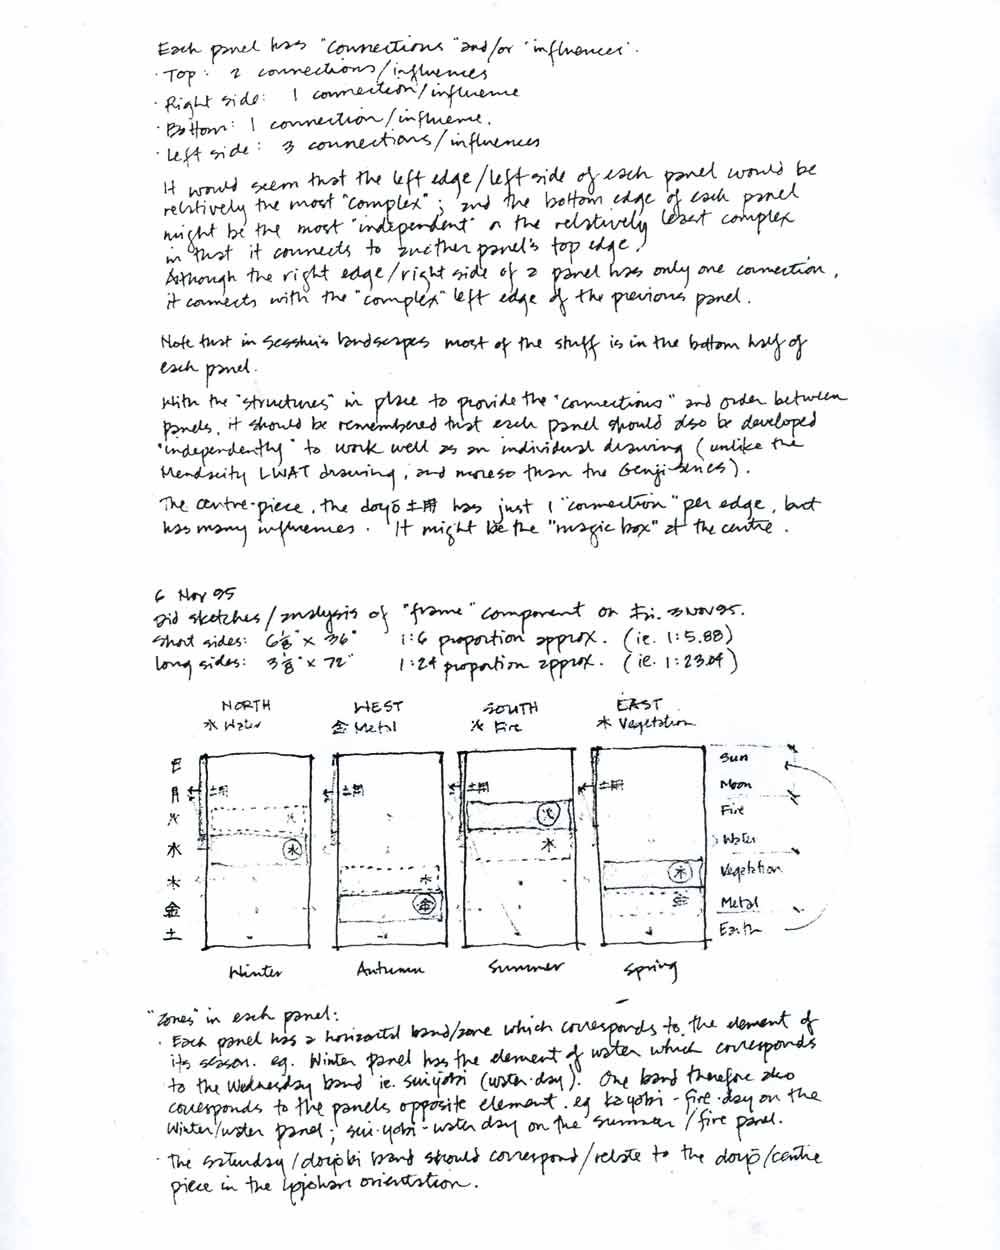 Each panel has "connections" and/or "influences".
· Top: 2 connections/influences
· Right side: 1 connection/influence
· Bottom: 1 connection/influence.
· Left side: 3 connections/influences
It would seem that the left edge/left side of each panel would be
relatively the most "complex"; and the bottom edge of each panel
might be the most "independent" or the relatively least complex
in that it connects to another panel's top edge.
Although the right edge/right side of a panel has only one connection,
it connects with the "complex" left edge of the previous panel.
Note that in Sesshu's landscapes most of the stuff is in the bottom half of
each panel.
With the "structures" in place to provide the "connections" and order between
panels, it should be remembered that each panel should also be developed
"independently" to work well as an individual drawing (unlike the
Mendacity LWAT drawing, and moreso than the Genji series).
The centre-piece, the doyō 土用 has just 1 "connection" per edge, but
has many influences. It might be the "magic box" at the centre.
6 Nov 95
Did sketches/analysis of "frame" component on Fri. 3 Nov 95.
Short sides: 6 1/8" x 36" 1:6 proportion approx. (ie. 1:5.88)
Long sides: 3 1/8" x 72" 1:24 proportion approx. (ie. 1:23.04)
NORTH WEST SOUTH EAST
水 Water 金 Metal 火 Fire 木 Vegetation
日 Sun
月 土用 土用 土用 土用 Moon
火 火 火 Fire
水 水 水 Water
木 木 木 Vegetation
金 金 金 Metal
土 Earth
Winter Autumn Summer Spring
"Zones" in each panel:
· Each panel has a horizontal band/zone which corresponds to the element of
its season. eg. Winter panel has the element of water which corresponds
to the Wednesday band ie. suiyobi (water-day). One band therefore also
corresponds to the panels opposite element. eg kayobi - fire-day on the
Winter/water panel; sui-yobi - water day on the summer/fire panel.
· The Saturday/doyōbi band should correspond/relate to the doyō/centre
piece in the orientation.